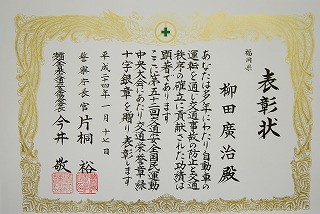 表彰状
福岡県
柳田廣治殿
あなたは多年にわたり自動車の
運転を通じ交通事故の防止と交通
秩序の確立に貢献された功績は
顕著であります
ここに第五十二回交通安全国民運動
中央大会にあたり交通栄誉章緑
十字銀章を贈り表彰します
平成二十四年一月十七日
警察庁長官 片桐裕
今井敬